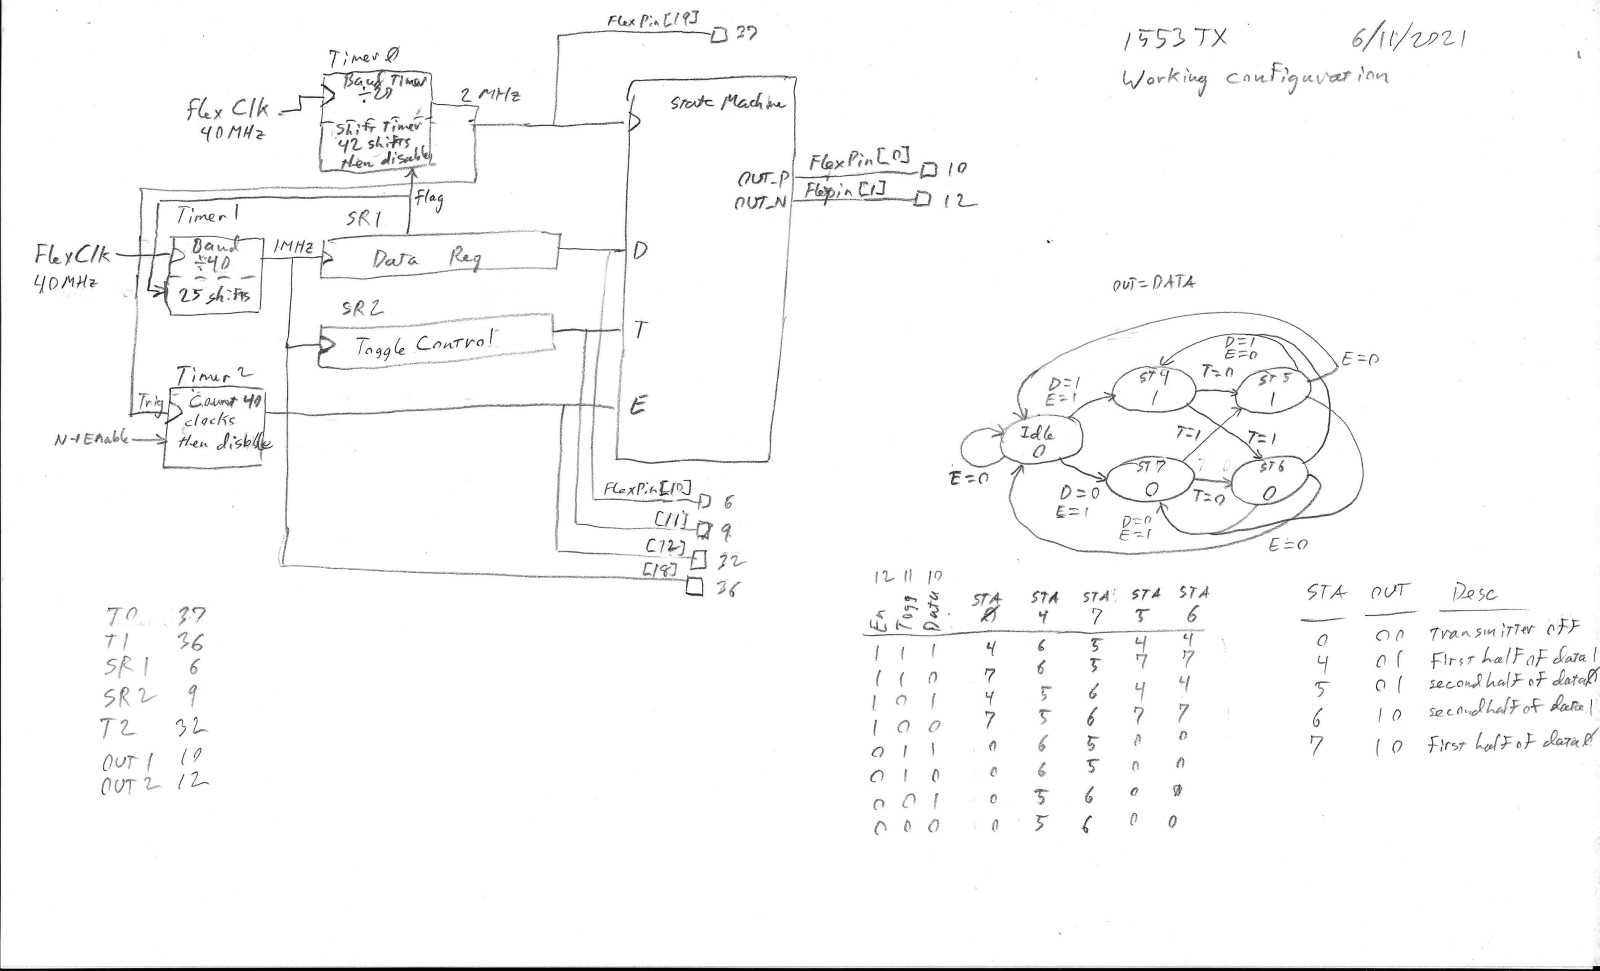 1553 TX 6/11/2021
Working configuration
FlexPin[19] 37
Timer 0
Baud Timer
÷20
Flex Clk
40MHz
Shift Timer
42 shifts
then disable
2 MHz
State Machine
OUT_P FlexPin[0] 10
OUT_N Flexpin[1] 12
Flag
Timer 1
FlexClk
40MHz
Baud
÷40
25 shifts
1MHz
SR1
Data Reg
D
SR2
Toggle Control
T
Timer 2
Trig
N-1 Enable
Count 40
clocks
then disable
E
FlexPin[10] 6
[11] 9
[12] 32
[18] 36
T0 37
T1 36
SR1 6
SR2 9
T2 32
OUT1 10
OUT2 12
OUT=DATA
D=1
E=0
E=0
ST4
1
T=0
ST5
1
D=1
E=1
Idle
0
E=0
T=1
T=1
ST7
0
T=0
ST6
0
D=0
E=1
D=0
E=1
E=0
12 11 10
En Togg Data STA 0 STA 4 STA 7 STA 5 STA 6
1 1 1 4 6 5 4 4
1 1 0 7 6 5 7 7
1 0 1 4 5 6 4 4
1 0 0 7 5 6 7 7
0 1 1 0 6 5 0 0
0 1 0 0 6 5 0 0
0 0 1 0 5 6 0 0
0 0 0 0 5 6 0 0
STA OUT Desc
0 00 Transmitter off
4 01 First half of data 1
5 01 second half of data 0
6 10 second half of data 1
7 10 First half of data 0